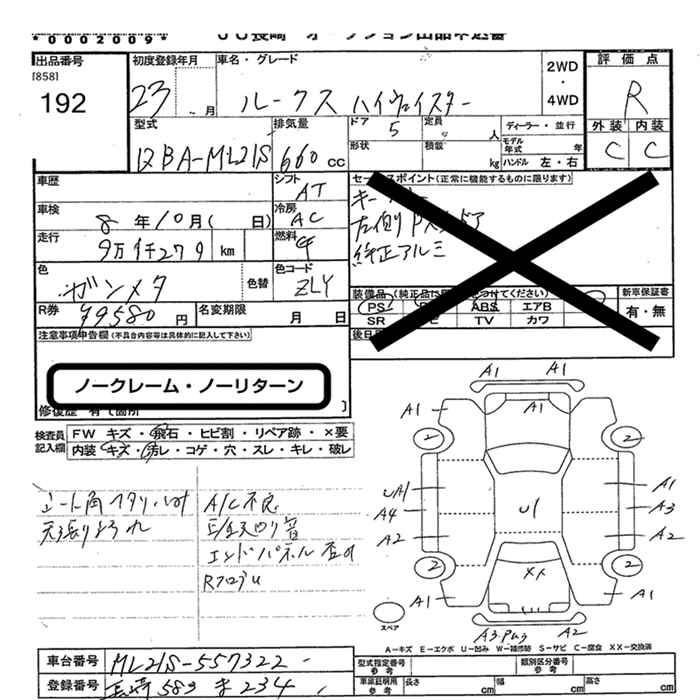 *0002009*
出品番号
[858]
192
初度登録年月
23 月
車名・グレード
ルークス ハイウェイスター
2WD
・
4WD
評価点
R
外装 内装
C C
型式
DBA-ML21S
排気量
660 cc
ドア
5
定員
人
ディーラー・並行
形状
積載
kg
モデル年式
年
ハンドル 左・右
車歴
シフト
AT
車検
8 年 10 月( 日)
冷房
AC
走行
9万1千279 km
燃料
色
ガンメタ
色替
色コード
ZLY
R券
¥9580 円
名変期限
月 日
セールスポイント(正常に機能するものに限ります)
キー
左側Pスドア
純正アルミ
装備品
PS
ABS
エアB
SR
TV
カワ
新車保証書
有・無
後日
注意事項申告欄(不具合内容等は具体的に記入して下さい)
ノークレーム・ノーリターン
修復歴 有(箇所 )
検査員記入欄
FW キズ・飛石・ヒビ割・リペア跡・×要
内装・キズ・汚レ・コゲ・穴・スレ・キレ・破レ
シート角ヘタリ
天張りよごれ
A/C不良
エンドパネル
A1 A1
A1 A1 A1
2 2
UA1 A1
A4 U1 A3
A2 A2
2 2
XX
A1 A1
A3 A2
スペア
A=キズ E=エクボ U=凹み W=補修跡 S=サビ C=腐食 XX=交換済
車台番号
ML21S-557322
登録番号
長崎 583 ま 234
型式指定番号
参考
類別区分番号
参考
車庫証明用
参考
長さ
cm
幅
cm
高さ
cm